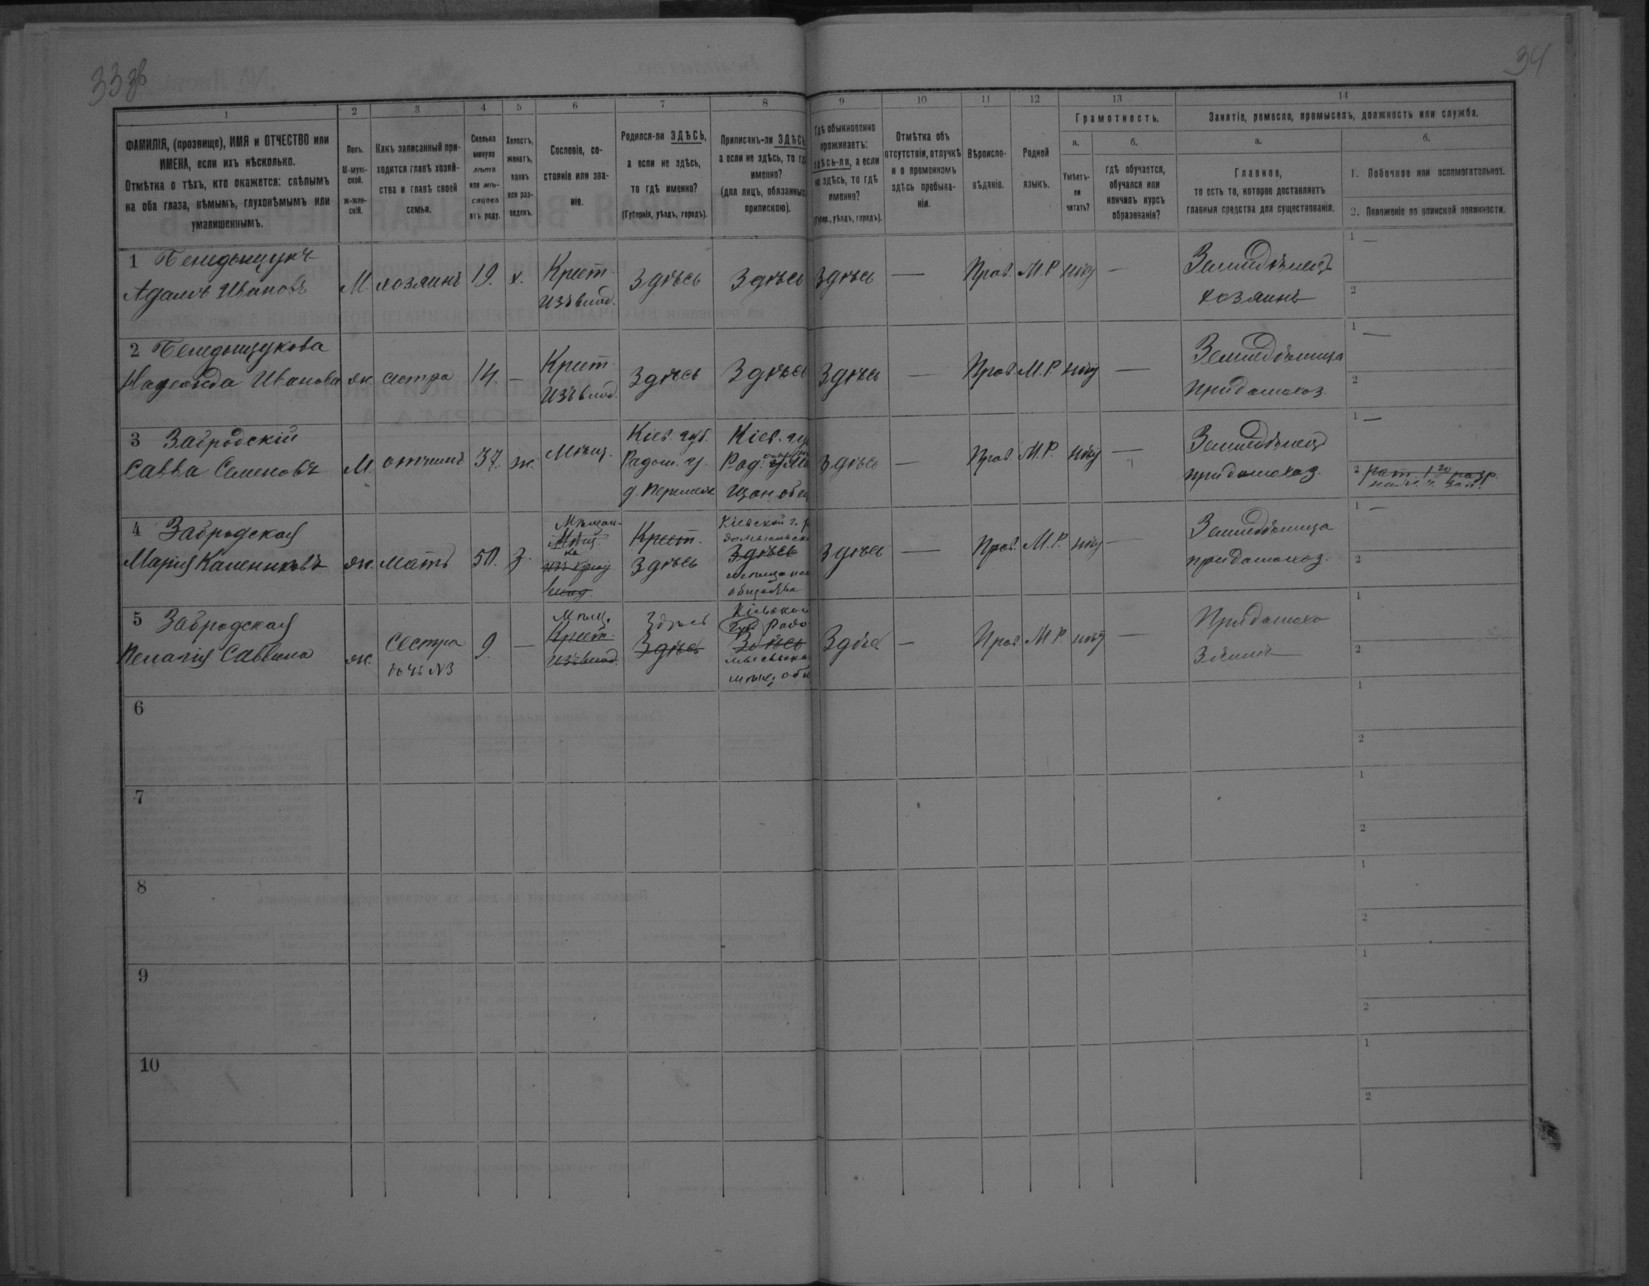 33 об
34
1
2
3
4
5
6
7
8
9
10
11
12
13
14
ФАМИЛІЯ, (прозвище), ИМЯ и ОТЧЕСТВО или
ИМЕНА, если ихъ нѣсколько.
Отмѣтка о тѣхъ, кто окажется: слѣпымъ
на оба глаза, нѣмымъ, глухонѣмымъ или
умалишеннымъ.
Полъ.
М-муж-
ской.
ж-жен-
скій.
Какъ записанный при-
ходится главѣ хозяй-
ства и главѣ своей
семьи.
Сколько
минуло
лѣтъ
или мѣ-
сяцевъ
отъ роду.
Холостъ,
женатъ,
вдовъ
или раз-
веденъ.
Сословіе, со-
стояніе или зва-
ніе.
Родился-ли ЗДѢСЬ,
а если не здѣсь,
то гдѣ именно?
(Губернія, уѣздъ, городъ).
Приписанъ-ли ЗДѢСЬ
а если не здѣсь, то гдѣ
именно?
(для лицъ, обязанныхъ
припискою).
Гдѣ обыкновенно
проживаетъ:
здѣсь-ли, а если
не здѣсь, то гдѣ
именно?
(Губер., уѣздъ, городъ).
Отмѣтка объ
отсутствіи, отлучкѣ
и о временномъ
здѣсь пребыва-
ніи.
Вѣроиспо-
вѣданіе.
Родной
языкъ.
Грамотность.
а.
Умѣетъ-
ли
читать?
б.
Гдѣ обучается,
обучался или
кончилъ курсъ
образованія?
Занятіе, ремесло, промыселъ, должность или служба.
а.
Главное,
то есть то, которое доставляетъ
главныя средства для существованія.
б.
1. Побочное или вспомогательное.
2. Положеніе по воинской повинности.
1
Адамъ Ивановъ
М. хозяинъ 19. х. Крест. изъ влад. Здѣсь Здѣсь Здѣсь — Прав. М.Р. нѣту — Земледѣлецъ хозяинъ
1 —
2
2
Надежда Иванова
ж сестра 14. — Крест. изъ влад. Здѣсь Здѣсь Здѣсь — Прав. М.Р. нѣту — Земледѣлица при домохоз.
1 —
2
3 Забродскій
Савва Семеновъ
М. отчимъ 37. ж. Мѣщ. Кіев. губ. Радом. у. Кіев. Здѣсь — Прав. М.Р. нѣту — Земледѣлецъ при домохоз.
1 —
2
4 Забродская
Марія
ж. мать 50. з. Здѣсь Здѣсь Здѣсь — Прав. М.Р. нѣту — Земледѣлица при домохоз.
1 —
2
5 Забродская
Пелагія Саввина
ж. сестра 9. — Мѣщ. Крест. изъ влад. Здѣсь Здѣсь Здѣсь Здѣсь — Прав. М.Р. нѣту —
1
2
6
1
2
7
1
2
8
1
2
9
1
2
10
1
2